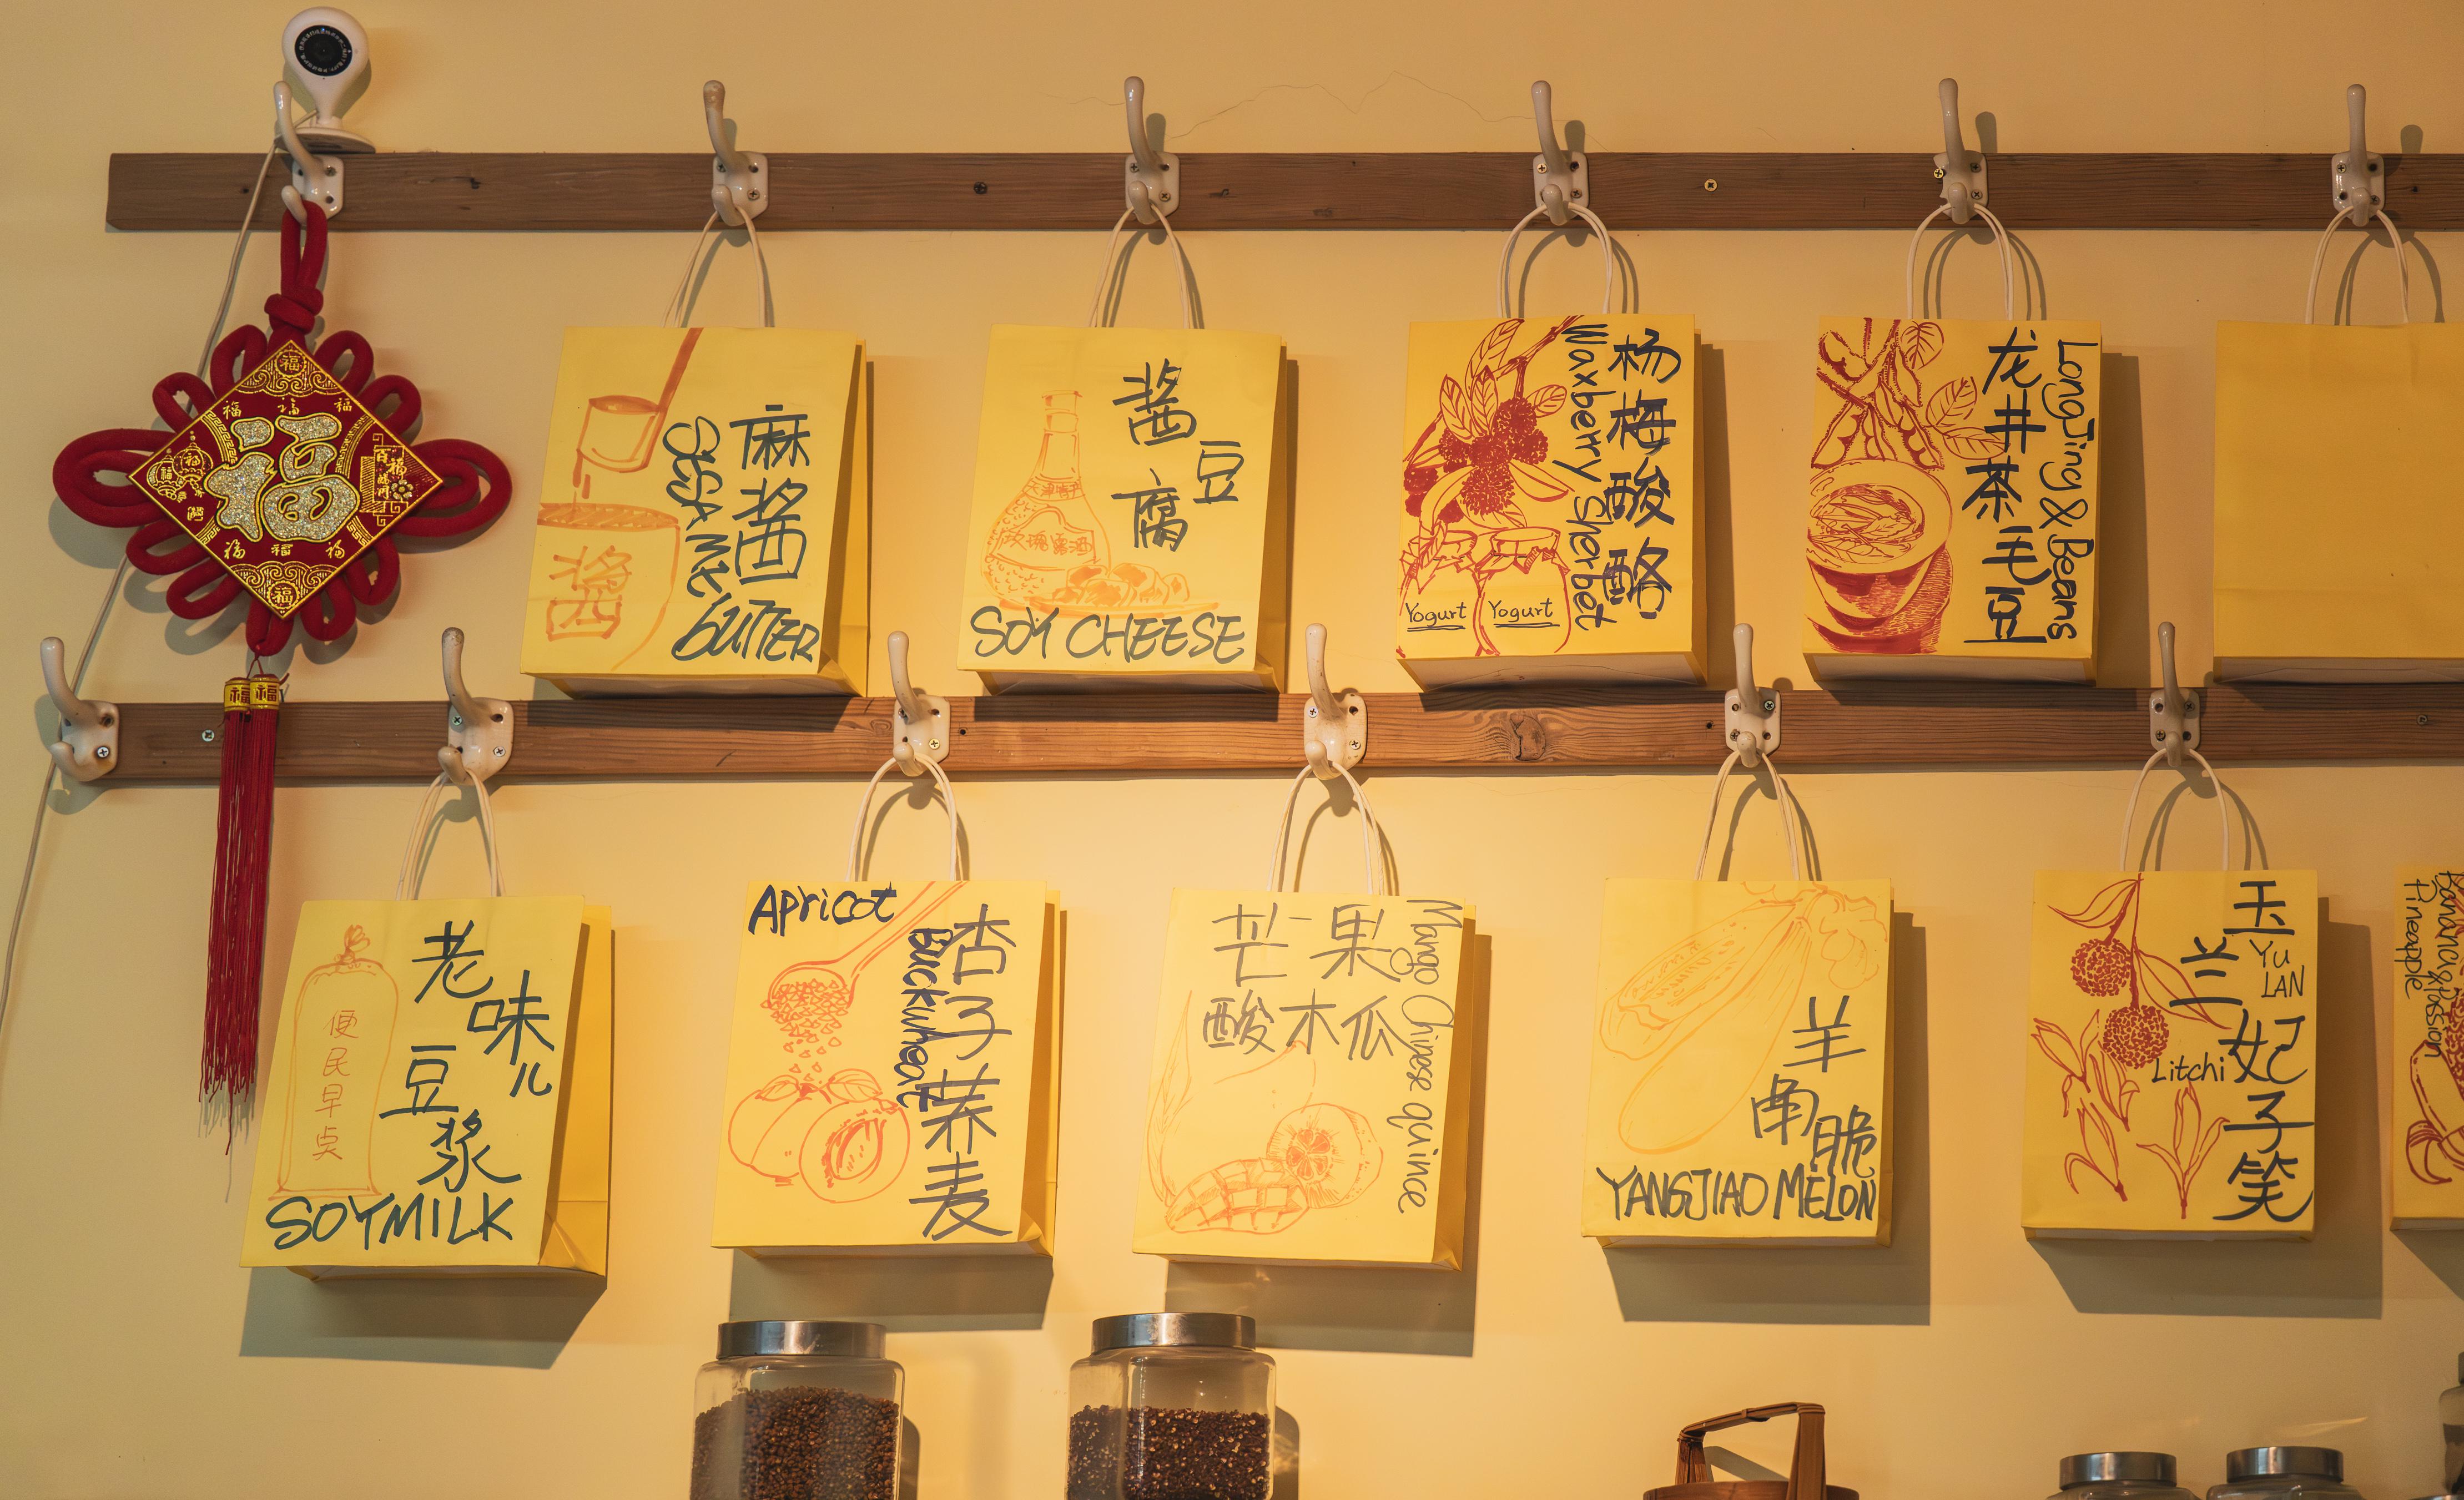 福
福
福
福
福
福
福
福
福
福
麻酱
SESAME
BUTTER
酱
酱豆腐
玫瑰露酒
SOY CHEESE
杨梅酸酪
Waxberry Sherbet
Yogurt
Yogurt
Longjing & Beans
龙井茶毛豆
老味儿
豆浆
便民早点
SOYMILK
Apricot
Buckwheat
杏子荞麦
芒果
酸木瓜
Mango Chinese quince
羊角脆
YANGJIAO MELON
玉兰妃子笑
Yu
LAN
Litchi
Banana & passion
Pineapple